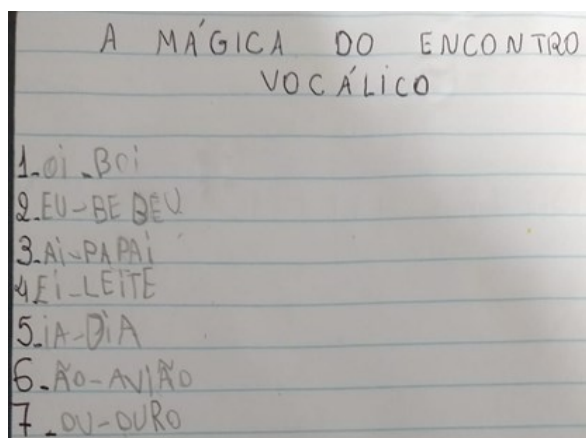 A MÁGICA DO ENCONTRO
VOCÁLICO
1-Oi-BOi
2-EU-BEBEU
3-Ai-PAPAi
4 Ei-LEiTE
5-iA-DiA
6-ÃO-AViÃO
7-OU-OURO